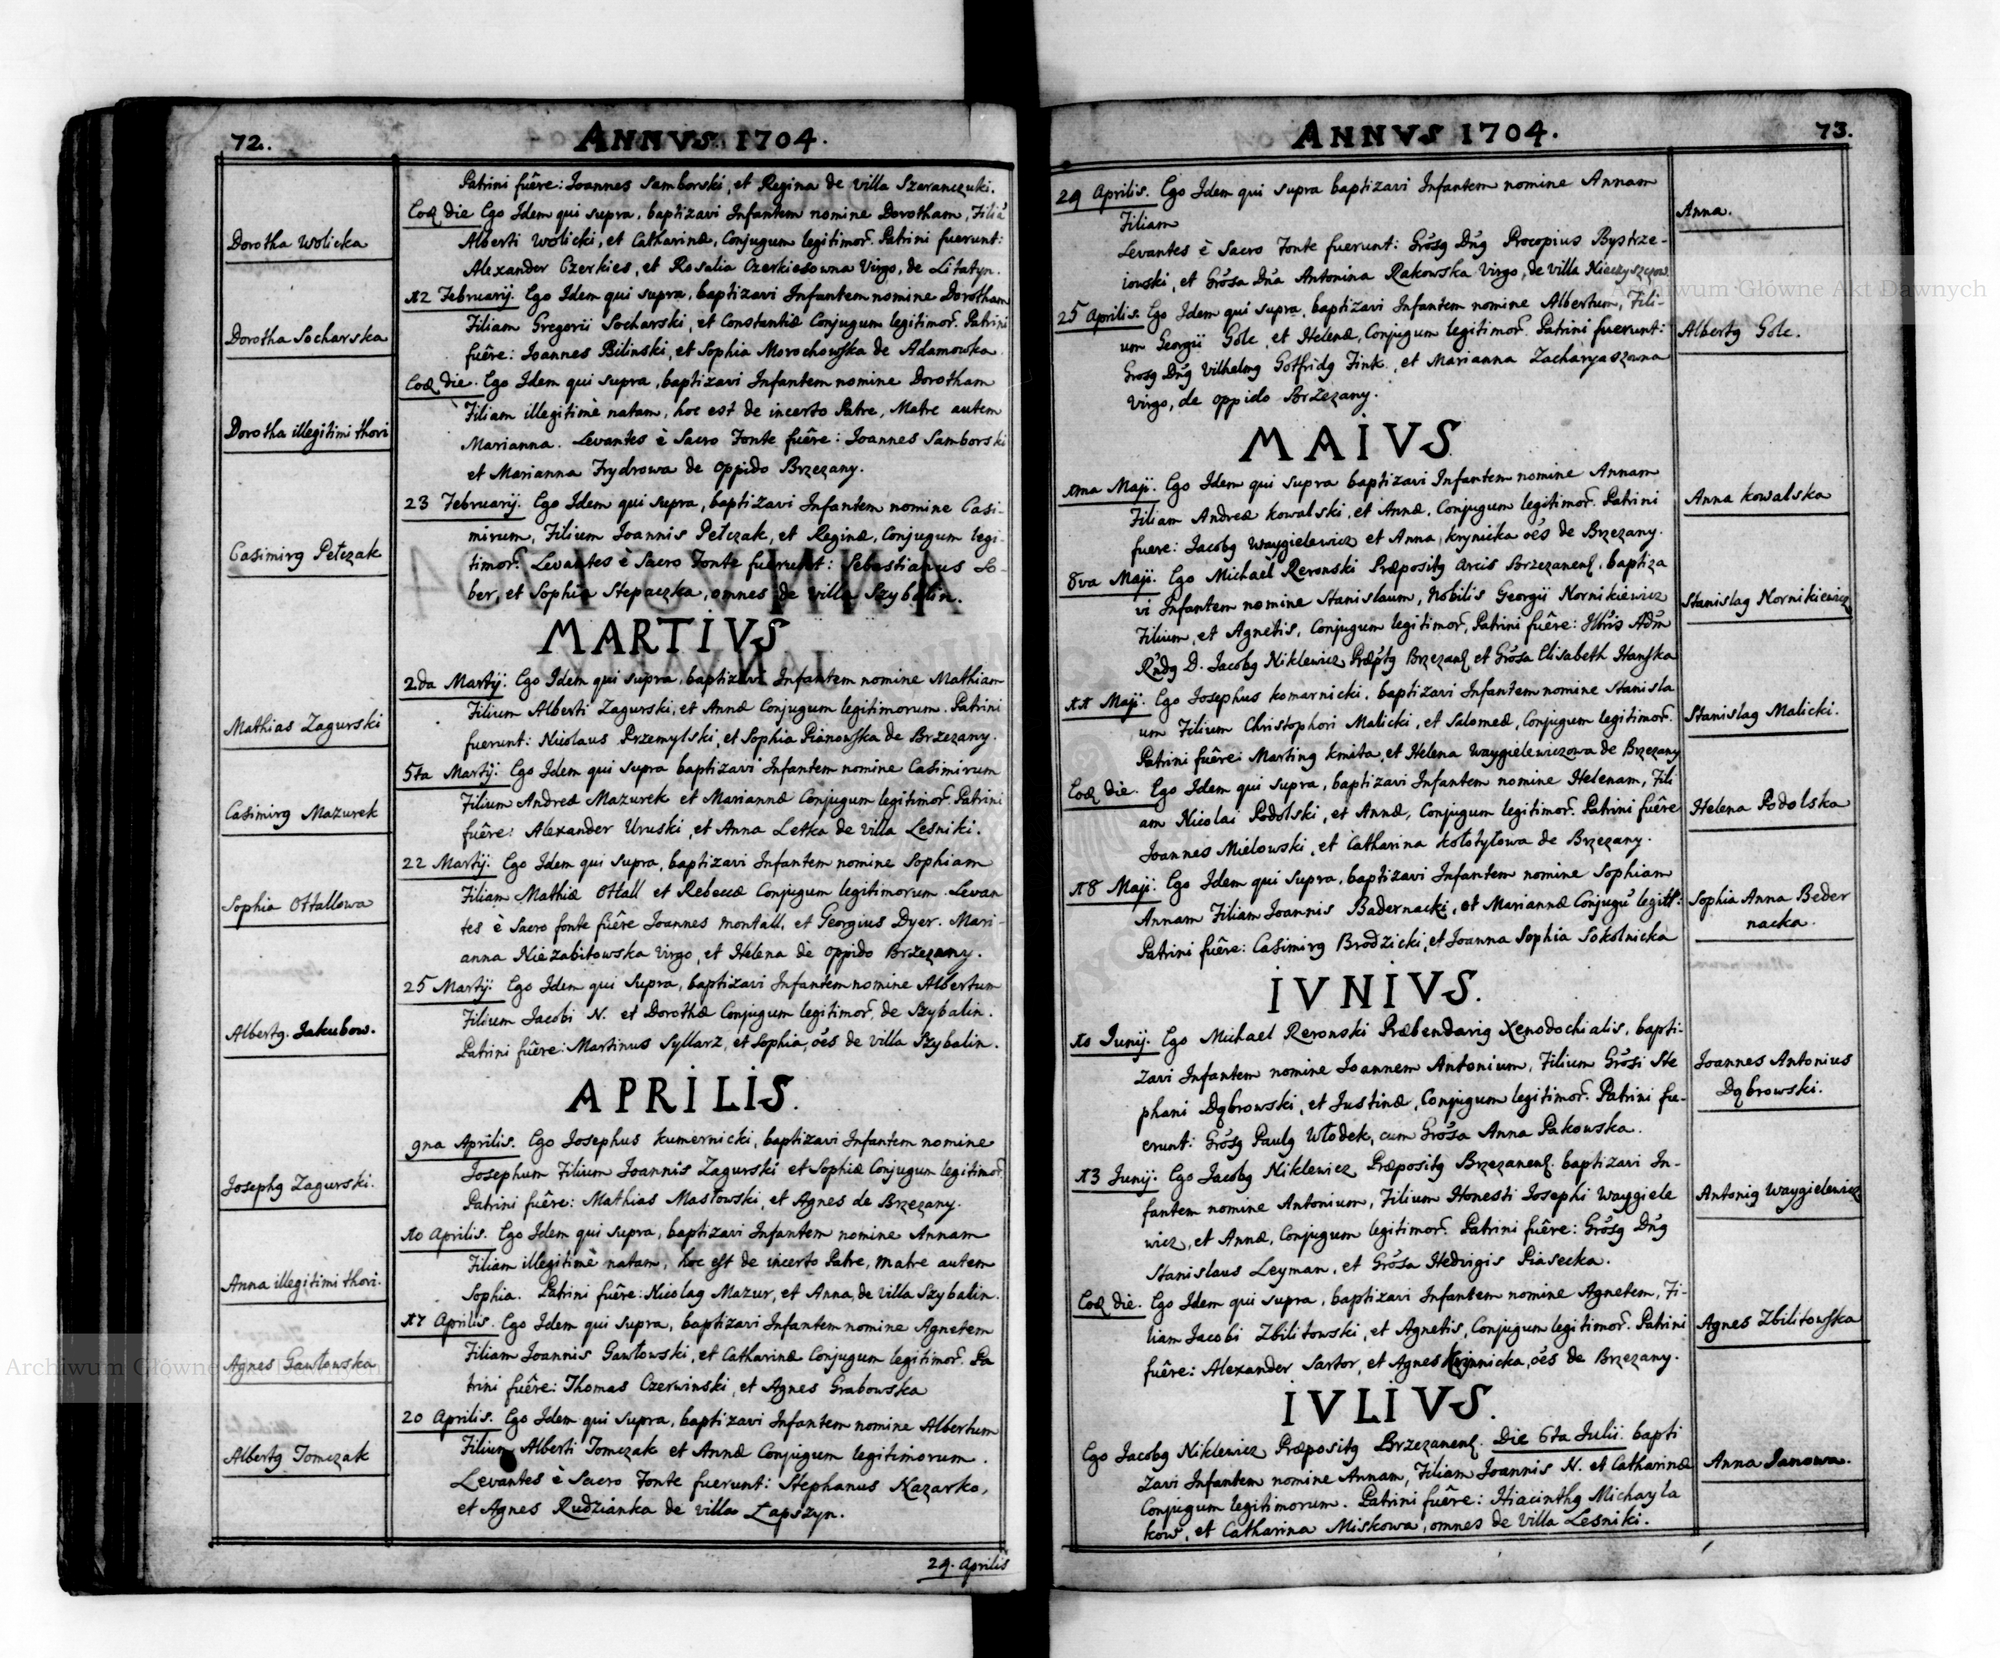 72.
ANNVS 1704.
Patrini fuêre: Joannes Samborski, et Regina de villa Szaranczuki.
Dorotha Wolicka
Eoq die Ego Idem qui supra, baptizavi Infantem nomine Dorotham, Filiã
Alberti Wolicki, et Catharinæ, Conjugum legitimoř. Patrini fuerunt:
Alexander Czerkies, et Rosalia Czerkiesowna Virgo, de Litatyn.
Dorotha Socharska
12 Februarij. Ego Idem qui supra, baptizavi Infantem nomine Dorotham
Filiam Gregorii Socharski, et Constantiæ Conjugum legitimoř. Patrini
fuêre: Joannes Bilinski, et Sophia Morochowska de Adamowka.
Dorotha illegitimi thori
Eoq die. Ego Idem qui supra, baptizavi Infantem nomine Dorotham
Filiam illegitimè natam, hoc est de incerto Patre, Matre autem
Marianna. Levantes è Sacro Fonte fuêre: Joannes Samborski
et Marianna Frydrowa de oppido Brzezany.
Casimirg Pełczak
23 Februarij. Ego Idem qui supra, baptizavi Infantem nomine Casi-
mirum, Filium Joannis Pełczak, et Reginæ, Conjugum legi-
timoř. Levantes è Sacro Fonte fuerunt: Sebastianus So-
ber, et Sophia Stepaczka, omnes de villa Szybalin.
MARTIVS
Mathias Zagurski
2da Martij. Ego Idem qui supra, baptizavi Infantem nomine Mathiam
Filium Alberti Zagurski, et Annæ Conjugum legitimorum. Patrini
fuerunt: Nicolaus Przemylski, et Sophia Pianowska de Brzezany.
Casimirg Mazurek
5ta Martij. Ego Idem qui supra baptizavi Infantem nomine Casimirum
Filium Andreæ Mazurek et Mariannæ Conjugum legitimoř. Patrini
fuêre: Alexander Uruski, et Anna Letka de villa Lesniki.
Sophia Ottallowa
22 Martij. Ego Idem qui supra, baptizavi Infantem nomine Sophiam
Filiam Mathiæ Ottall et Rebeccæ Conjugum legitimorum. Levan
tes è Sacro fonte fuêre Joannes Montall, et Georgius Dyer. Mari-
anna Niezabitowska Virgo, et Helena de oppido Brzezany.
Albertg. Jakubow.
25 Martij. Ego Idem qui supra, baptizavi Infantem nomine Albertum
Filium Jacobi N. et Dorothæ Conjugum legitimoř, de Szybalin.
Patrini fuêre: Martinus Syllarz, et Sophia, oẽs de villa Szybalin.
APRILIS.
Josephg Zagurski.
9na Aprilis. Ego Josephus Kumernicki, baptizavi Infantem nomine
Josephum Filium Joannis Zagurski et Sophiæ Conjugum legitimoř
Patrini fuêre: Mathias Masłowski, et Agnes de Brzezany.
Anna illegitimi thori.
10 Aprilis. Ego Idem qui supra, baptizavi Infantem nomine Annam
Filiam illegitimè natam, hoc est de incerto Patre, matre autem
Sophia. Patrini fuêre: Nicolag Mazur, et Anna, de villa Szybalin.
Agnes Gawłowska
17 Aprilis. Ego Idem qui supra, baptizavi Infantem nomine Agnetem
Filiam Joannis Gawłowski, et Catharinæ Conjugum legitimoř. Pa
trini fuêre: Thomas Czerwinski, et Agnes Grabowska
Albertg Tomczak
20 Aprilis. Ego Idem qui supra, baptizavi Infantem nomine Albertum
Filium Alberti Tomczak et Annæ Conjugum legitimorum.
Levantes è Sacro Fonte fuerunt: Stephanus Nazarko,
et Agnes Rudzianka de villa Łapszyn.
24. Aprilis
ANNVS 1704.
73.
24 Aprilis. Ego Idem qui supra baptizavi Infantem nomine Annam
Filiam
Anna.
Levantes è Sacro Fonte fuerunt: Grõsg Dñg Procopius Bystrze-
iowski, et Grõsa Dña Antonina Rakowska Virgo, de villa Nieczyszczow.
25 Aprilis. Ego Idem qui supra, baptizavi Infantem nomine Albertum, Fili-
um Georgii Golc, et Helenæ, Conjugum legitimoř. Patrini fuerunt:
Albertg Golc.
Grosg Dñg Vilhelmg Gotfridg Fink, et Marianna Zacharyaszowna
Virgo, de oppido Brzezany.
MAIVS
1ma Maji. Ego Idem qui supra baptizavi Infantem nomine Annam
Anna Kowalska
Filiam Andreæ Kowalski, et Annæ, Conjugum legitimoř. Patrini
fuere: Jacobg Waygielewicz et Anna, Krynicka oẽs de Brzezany.
8va Maji. Ego Michael Reronski Præpositg Arcis Brzezanens, baptiza
vi Infantem nomine Stanislaum, Nobilis Georgii Nornikiewicz
Stanislag Nornikiewicz
Filium, et Agnetis, Conjugum legitimoř, Patrini fuêre: Illŕis Adm̃
Rñdg D. Jacobg Niklewicz Præpstg Brzezans et Grõsa Elisabeth Hanska
11 Maji. Ego Josephus Komarnicki, baptizavi Infantem nomine Stanisla
Stanislag Malicki.
um Filium Christophori Malicki, et Salomeæ, Conjugum legitimoř.
Patrini fuêre: Marting Kmita, et Helena Waygielewiczowa de Brzezany
Eoq die. Ego Idem qui supra, baptizavi Infantem nomine Helenam, Fili
Helena Podolska
am Nicolai Podolski, et Annæ, Conjugum legitimoř. Patrini fuêre
Joannes Mielowski, et Catharina Kołotyłowa de Brzezany.
18 Maji. Ego Idem qui supra, baptizavi Infantem nomine Sophiam
Sophia Anna Beder
nacka.
Annam Filiam Joannis Badernacki, et Mariannæ Conjugũ legitt:
Patrini fuêre: Casimirg Brodzicki, et Joanna Sophia Sokolnicka
IVNIVS.
10 Junij. Ego Michael Reronski Præbendarig Xenodochialis, bapti-
zavi Infantem nomine Joannem Antonium, Filium Grõsi Ste
Joannes Antonius
Dąbrowski.
phani Dąbrowski, et Justinæ, Conjugum legitimoř. Patrini fu-
erunt: Grõsg Paulg Włodek, cum Grõsa Anna Pakowska.
13 Junij. Ego Jacobg Niklewicz Præpositg Brzezanens. baptizavi In-
fantem nomine Antonium, Filium Honesti Josephi Waygiele
Antonig Waygielewicz
wicz, et Annæ, Conjugum legitimoř. Patrini fuêre: Grõsg Dñg
Stanislaus Leyman, et Grõsa Hedvigis Piasecka.
Eoq die. Ego Idem qui supra, baptizavi Infantem nomine Agnetem, Fi-
liam Jacobi Zbilitowski, et Agnetis, Conjugum legitimoř. Patrini
Agnes Zbilitowska
fuêre: Alexander Sartor, et Agnes Krynnicka, oẽs de Brzezany.
IVLIVS.
Ego Jacobg Niklewicz Præpositg Brzezanens. Die 6ta Julii. bapti
zavi Infantem nomine Annam, Filiam Joannis N. et Catharinæ
Anna Janowa.
Conjugum legitimorum. Patrini fuêre: Hiacinthg Michayla
kow, et Catharina Miskowa, omnes de villa Lesniki.
Archiwum Główne Akt Dawnych
Archiwum Główne Akt Dawnych